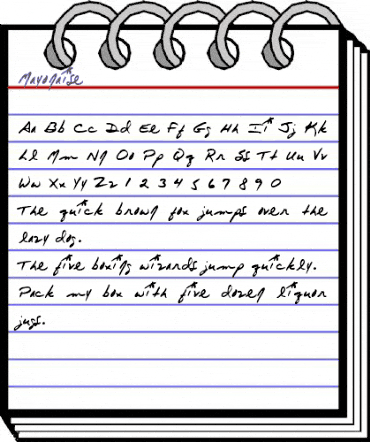 Mayonaise
Aa Bb Cc Dd Ee Ff Gg Hh Ii Jj Kk
Ll Mm Nn Oo Pp Qq Rr Ss Tt Uu Vv
Ww Xx Yy Zz 1 2 3 4 5 6 7 8 9 0
The quick brown fox jumps over the
lazy dog.
The five boxing wizards jump quickly.
Pack my box with five dozen liquor
jugs.